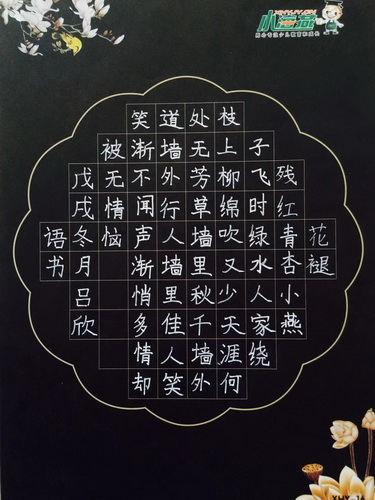 花褪
残红青杏小燕
子飞时绿水人家绕
枝上柳绵吹又少天涯何
处无芳草墙里秋千墙外
道墙外行人墙里佳人笑
笑渐不闻声渐悄多情却
被无情恼
戊戌冬月吕欣
语书